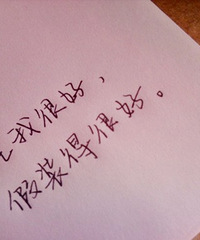 我很好，
假装得很好。